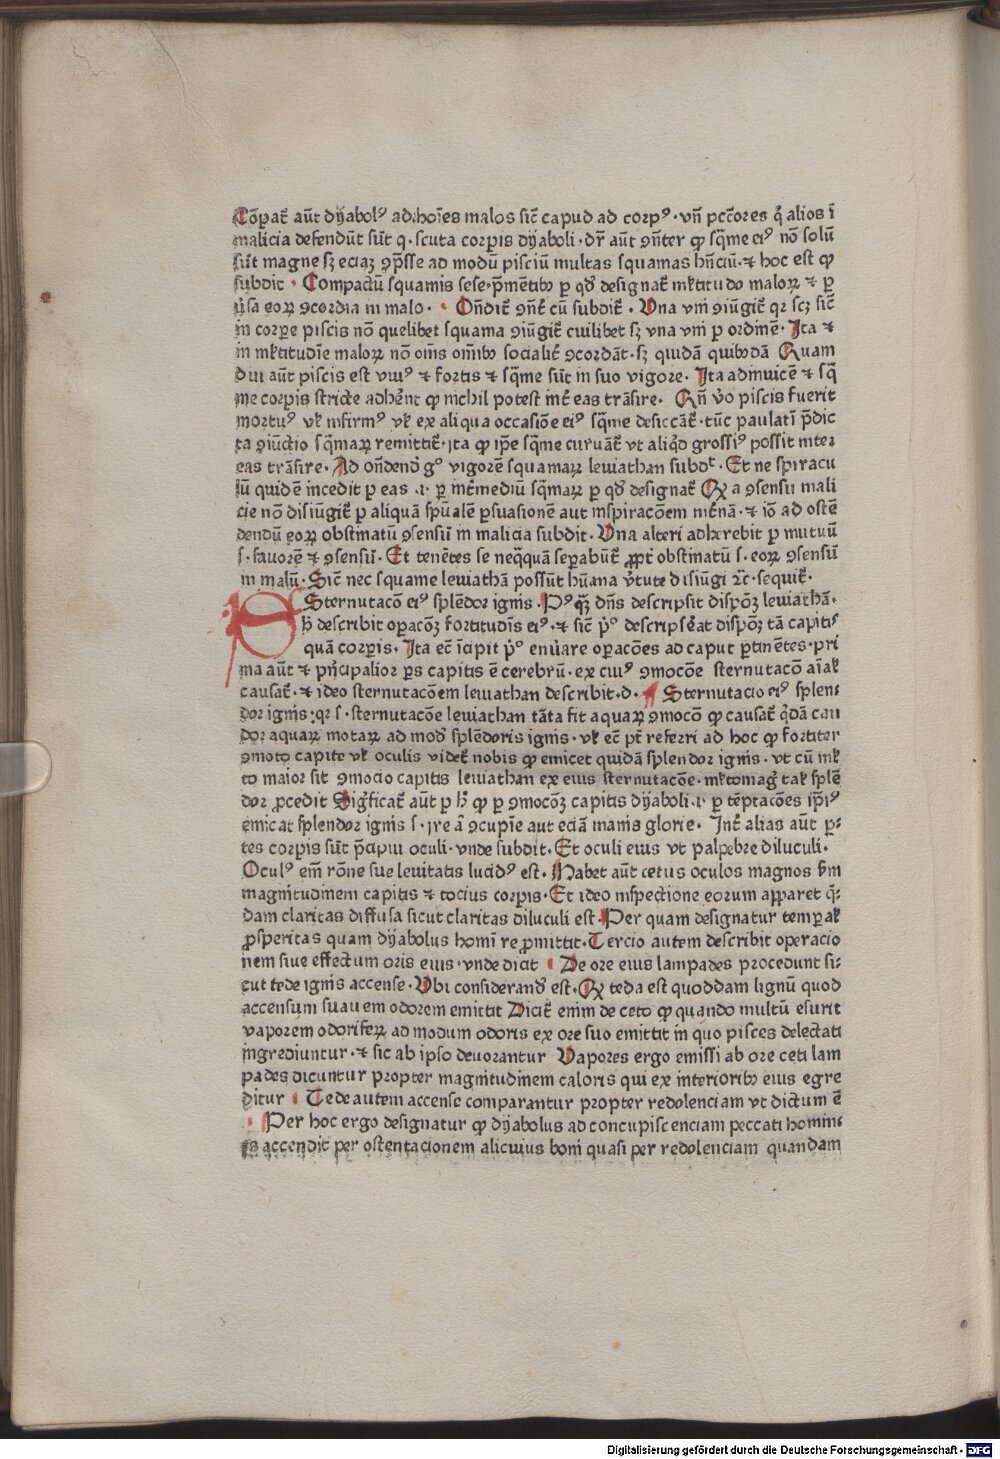 Cōꝑat̄ aūt dyabolꝰ ad hoīes malos sic̄ capud ad corpꝰ · vn̄ pctōres q̇ alios ī
malicia defendūt sūt q · scuta corꝑis dyaboli · dr̄ aūt 9n̄ter ꝙ sq̄me eiꝰ nō solū
sūt magne sꝫ eciaꝫ 9p̄sse ad modū pisciū multas squamas hn̄ciū · ⁊ hoc est ꝙ
subdit · Compactū squamis sese p̄mētibꝰ ꝑ qd̄ designat̄ mltitudo maloꝝ ⁊ ꝑ
ip̄a eoꝝ 9cordia in malo · Oñdit̄ 9n̄t̄ cū subdit̄ · Vna vni 9iūgit̄ qꝛ scꝫ sic̄
in corꝑe piscis nō quelibet squama 9iūgit̄ cuilibet sꝫ vna vni ꝑ ordinē · Ita ⁊
in mltitudīe maloꝝ nō om̄s om̄ibꝰ socialit̄ 9cordāt · sꝫ quidā quibꝰdā Quam
diu aūt piscis est viuꝰ ⁊ fortis ⁊ sq̄me sūt in suo vigore · Ita adinuicē ⁊ sq̄
me corꝑis stricte adhēnt ꝙ nichil potest int̄ eas trāsire · Qn̄ v̄o piscis fuerit
mortuꝰ vl infirmꝰ vl ex aliqua occasiōe eiꝰ sq̄me desiccāt̄ · tūc paulatī p̄dic
ta 9iūctio sq̄maꝝ remittit̄ · ita ꝙ ip̄e sq̄me curuāt̄ vt aliq̇d grossiꝰ possit inter
eas trāsire · Ad oñdend̄ gͦ vigorē squamaꝝ leuiathan subdᵗ · Et ne spiracu
lū quidē incedit ꝑ eas · i · ꝑ int̄mediū sq̄maꝝ ꝑ qd̄ designat̄ Qꝛ a 9sensu mali
cie nō disiūgit̄ ꝑ aliquā sp̄ualē ꝑsuasionē aut inspiracōem int̄nā · ⁊ iō ad ostē
dendū eoꝝ obstinatū 9sensū in malicia subdit · Vna alteri adherebit ꝑ mutuū
s · fauorē ⁊ 9sensū · Et tenētes se neq̄quā seꝑabūt̄ ꝓpt̄ obstinatū s · eoꝝ 9sensū
in malū · Sic̄ nec squame leuiathā possūt hūana v̄tute disiūgi ⁊c̄ · sequit̄ ·
Sternutacō eiꝰ splēdor ignis · Pꝰ qꝫ dn̄s descripsit dispōꝫ leuiathā ·
h̄ describit oꝑacōꝫ fortitudīs eiꝰ · ⁊ sic̄ ṗͦ descripserat dispōꝫ tā capitis
quā corꝑis · Ita ec̄ īcipit ṗͦ enūare oꝑacōes ad caput ꝑtinētes · pri
ma aūt ⁊ pn̄cipalior ꝑs capitis ē cerebrū · ex cuiꝰ 9mocōe sternutacō aīal
causat̄ · ⁊ ideo sternutacōem leuiathan describit · d · ¶ Sternutacio eiꝰ splen
dor ignis · qꝛ s · sternutacōe leuiathan tāta fit aquaꝝ 9mocō ꝙ causat̄ q̇dā can
dor aquaꝝ motaꝝ ad mod̄ splēdoris ignis · vl ec̄ pt̄ referri ad hoc ꝙ fortiter
9moto capite vl oculis videt̄ nobis ꝙ emicet quidā splendor ignis · vt cū ml
to maior sit 9mocio capitis leuiathan ex eius sternutacōe · mltomaḡ tal splē
dor ꝓcedit Siġficat̄ aūt ꝑ h̄ ꝙ ꝑ 9mocōꝫ capitis dyaboli · i · ꝑ tēptacōes ip̄iꝰ
emicat splendor ignis s · ire ā 9cupīe aut eciā manis glorie · Int̄ alias aūt ꝑ-
tes corꝑis sūt p̄cipui oculi · vnde subdit · Et oculi eius vt palpebre diluculi ·
Oculꝰ em̄ rōne sue leuitatis lucidꝰ est · Habet aūt cetus oculos magnos s̄m
magnitudinem capitis ⁊ tocius corꝑis · Et ideo inspectione eorum apparet q̄-
dam claritas diffusa sicut claritas diluculi est · Per quam designatur temꝑal
ꝓsperitas quam dyabolus homīi reꝓmittit · Tercio autem describit operacio
nem siue effectum oris eius · vnde dicit De ore eius lampades procedunt si-
cut tede ignis accense · Vbi considerand̄ est · Qꝛ teda est quoddam lignū quod
accensum suauem odorem emittit Dicit̄ enim de ceto ꝙ quando multū esurit
vaporem odoriferū ad modum odoris ex ore suo emittit in quo pisces delectati
ingrediuntur · ⁊ sic ab ipso deuorantur Vapores ergo emissi ab ore ceti lam
pades dicuntur propter magnitudinem caloris qui ex interioribꝰ eius egre
ditur Tede autem accense comparantur propter redolenciam vt dictum ē
Per hoc ergo designatur ꝙ dyabolus ad concupiscenciam peccati homini
es accendit per ostentacionem alicuius boni quasi per redolenciam quandam
Digitalisierung gefördert durch die Deutsche Forschungsgemeinschaft - DFG